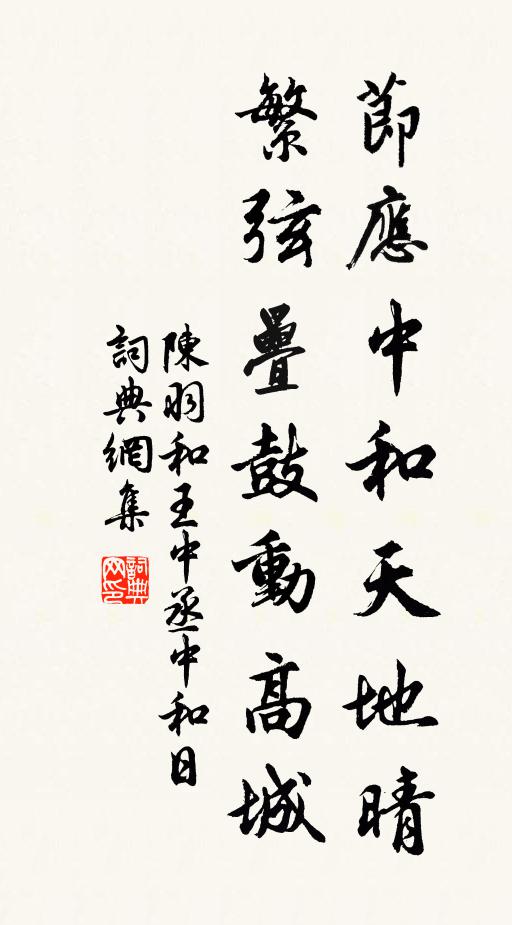 節應中和天地晴
繁弦疊鼓動高城
陳羽和王中丞中和日
詞典網集
詞典网印